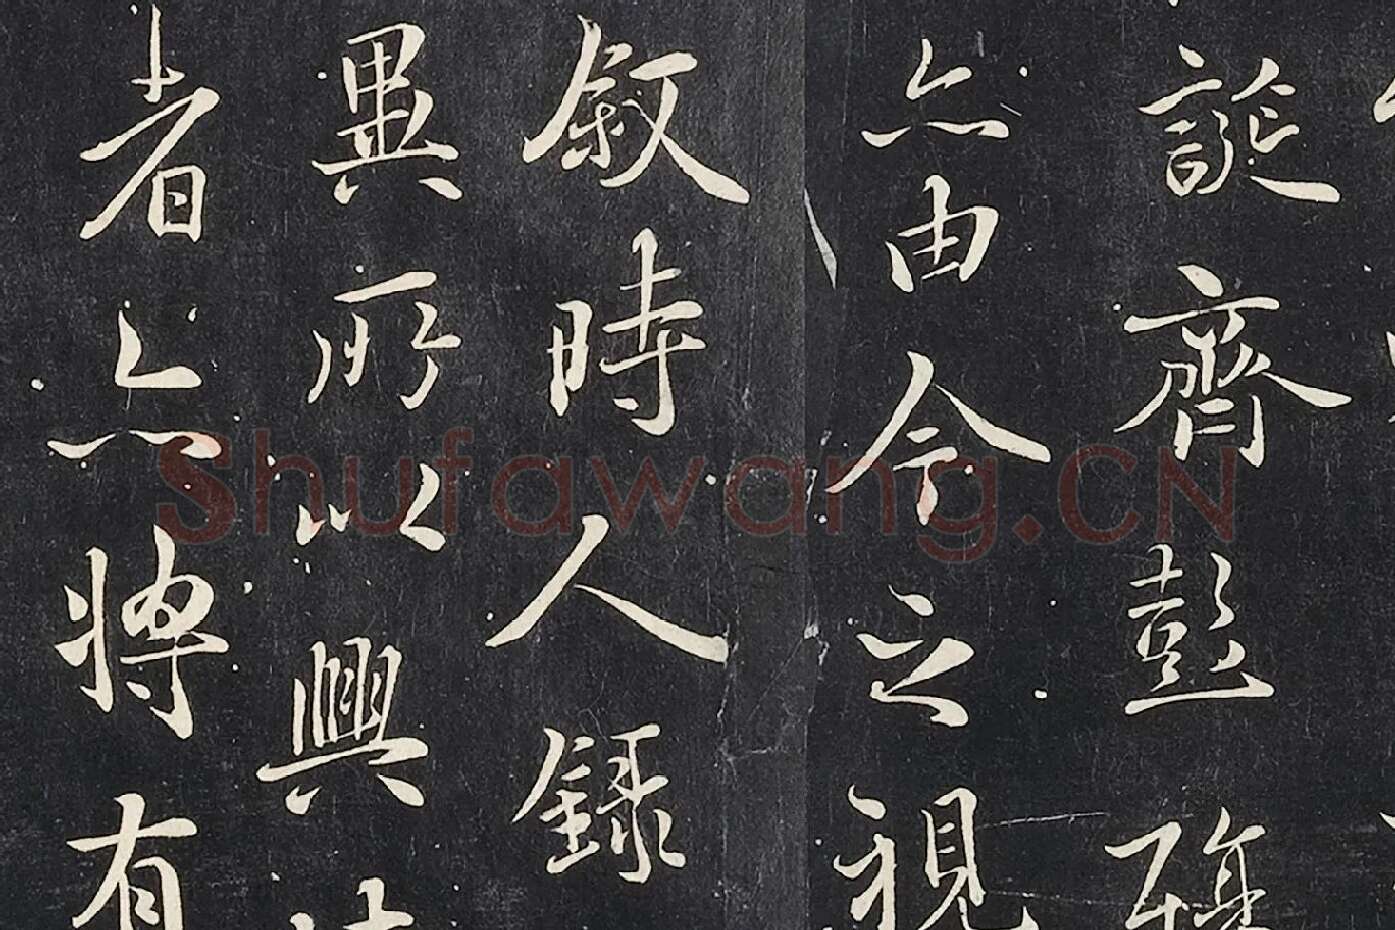 誕齊彭殤
亦由今之視
叙時人錄
異所以興
者亦將有
Shufawang.CN